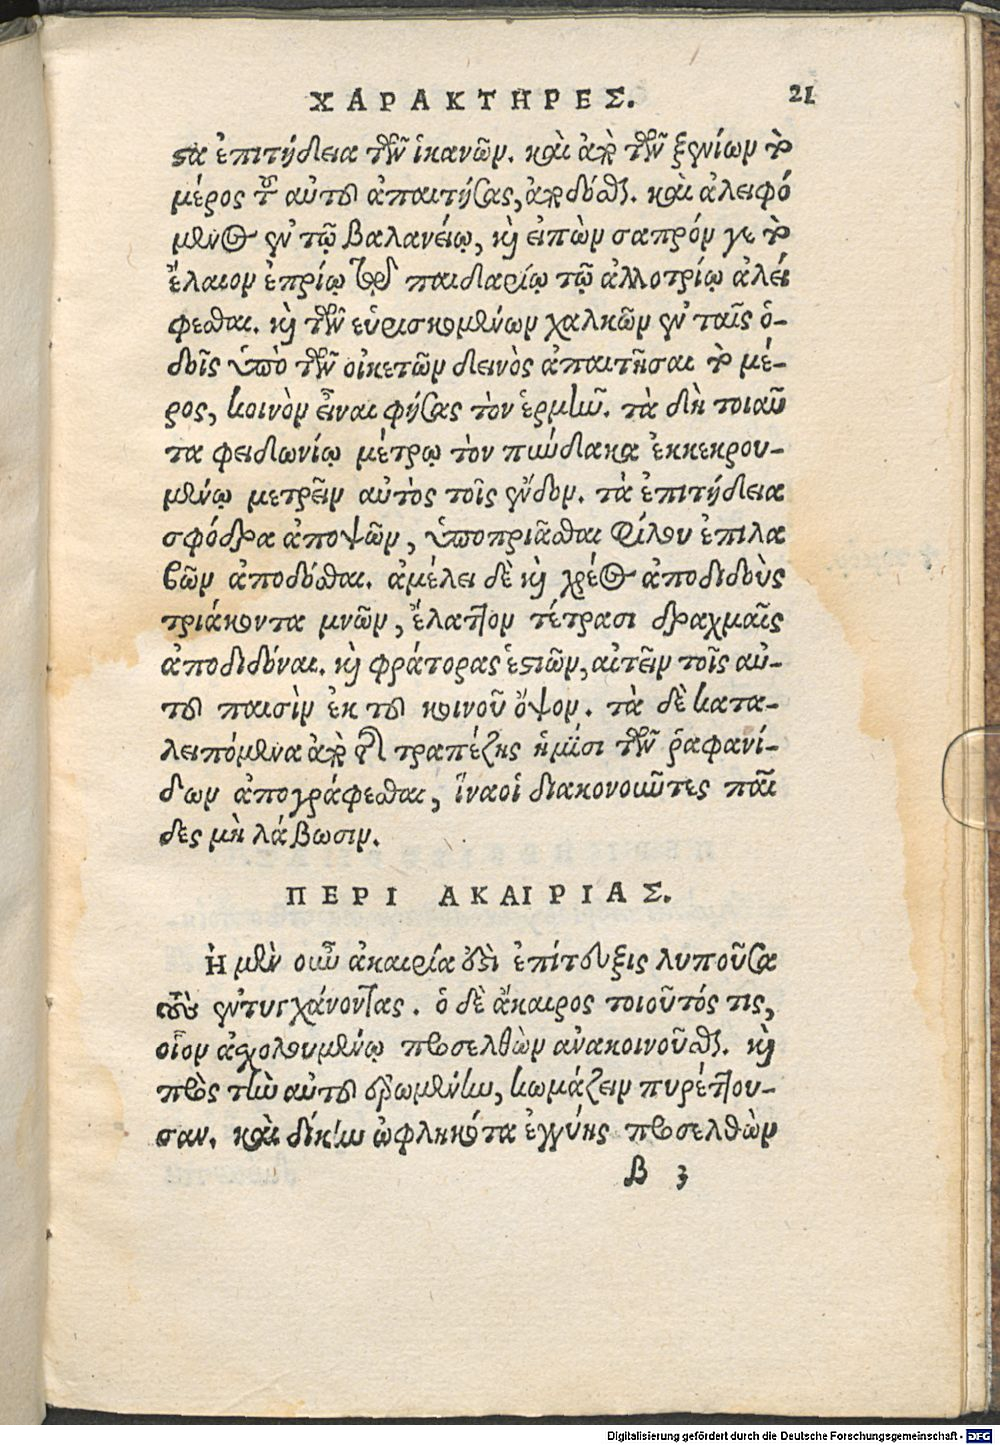 ΧΑΡΑΚΤΗΡΕΣ. 21
στα ἐπιτήδεια τῶν ἱκανῶν. καὶ ἀπὸ τῶν ξενίων τὸ
μέρος τὸ αὐτοῦ ἀπαιτήσας, ἀποδόσθαι. καὶ ἀλειφό
μενος ἐν τῷ βαλανείῳ, καὶ εἰπὼν σαπρόν γε τὸ
ἔλαιον ἐπρίω παιδαρίῳ τῷ ἀλλοτρίῳ ἀλεί
φεσθαι. καὶ τῶν εὑρισκομένων χαλκῶν ἐν ταῖς ὁ-
δοῖς ὑπὸ τῶν οἰκετῶν δεινὸς ἀπαιτῆσαι τὸ μέ-
ρος, κοινὸν εἶναι φήσας τὸν ἑρμῆν. τὰ δὴ τοιαῦ
τα φειδωνίῳ μέτρῳ τὸν πύνδακα ἐκκεκρου-
μένῳ μετρεῖν αὐτὸς τοῖς ἔνδον. τὰ ἐπιτήδεια
σφόδρα ἀποψῶν, ὑποπρίασθαι φίλου ἐπιλα
βῶν ἀποδόσθαι. ἀμέλει δὲ καὶ χρέος ἀποδιδοὺς
τριάκοντα μνῶν, ἔλαττον τέτρασι δραχμαῖς
ἀποδιδόναι. καὶ φράτορας ἑστιῶν, αἰτεῖν τοῖς αὑ-
τοῦ παισὶν ἐκ τοῦ κοινοῦ ὄψον. τὰ δὲ κατα-
λειπόμενα ἀπὸ τῆς τραπέζης ἡμίσι τῶν ῥαφανί-
δων ἀπογράφεσθαι, ἵναοἱ διακονοῦντες παῖ
δες μὴ λάβωσιν.
ΠΕΡΙ ΑΚΑΙΡΙΑΣ.
Ἡ μὲν οὖν ἀκαιρία ἐστὶ ἐπίτευξις λυποῦσα
τοὺς ἐντυγχάνοντας. ὁ δὲ ἄκαιρος τοιοῦτός τις,
οἷον ἀσχολουμένῳ προσελθὼν ἀνακοινοῦσθαι. καὶ
πρὸς τὴν αὐτοῦ ἐρωμένην, κωμάζειν πυρέττου-
σαν. καὶ δίκην ὠφληκότα ἐγγύης προσελθὼν
B 3
Digitalisierung gefördert durch die Deutsche Forschungsgemeinschaft - DFG